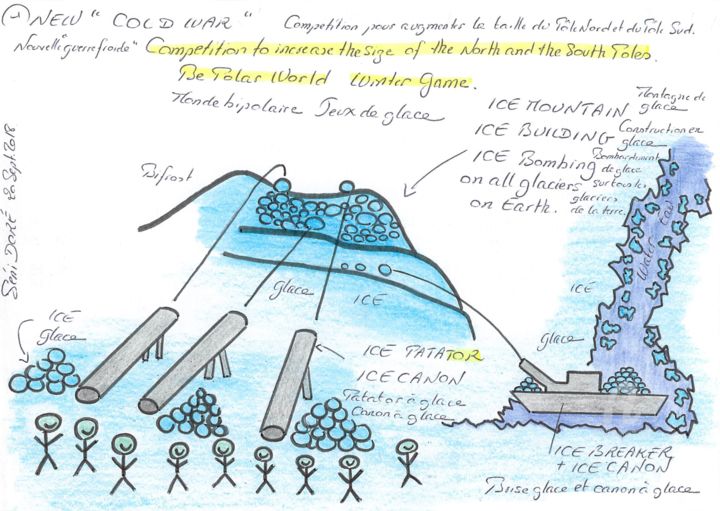 1 NEW "COLD WAR" Competition pour augmenter la taille du Pôle Nord et du Pôle Sud.
Nouvelle "guerre froide" Competition to increase the size of the North and the South Poles.
Be Polar World Winter Game.
Monde bipolaire Jeux de glace
ICE MOUNTAIN Montagne de glace
ICE BUILDING Construction en glace
ICE Bombing Bombardement de glace
on all glaciers sur tous les glaciers
on Earth. de la terre.
Bifrost
Séni DORÉ 20 Sept 2018
Water Eau
glace ICÉ
ICÉ
glace
ICÉ
glace
ICE TATATOR
ICE CANON
Tatator à glace
Canon à glace
ICE BREAKER
+ ICE CANON
Brise glace et canon à glace